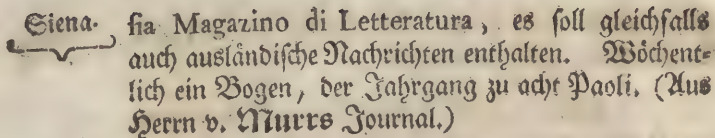 Siena. sia Magazino di Letteratura, es soll gleichfalls
auch ausländische Nachrichten enthalten. Wöchent=
lich ein Bogen, der Jahrgang zu acht Paoli. (Aus
Herrn v. Murrs Journal.)